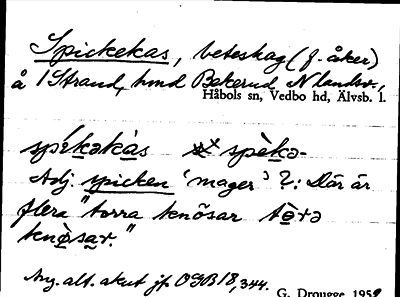 Spickekas, beteshag (f. åker)
å 1 Strand, hmd Bakerud, N landsv.,
Håbols sn, Vedbo hd, Älvsb. l.
spe̍kəkàs spèkə-
Adj. spicken 'mager'?: Där är
flera "torra knôsar tèrə
knòsar."
Ang. alt. akut jf OGB 18, 344.
G. Drougge 195